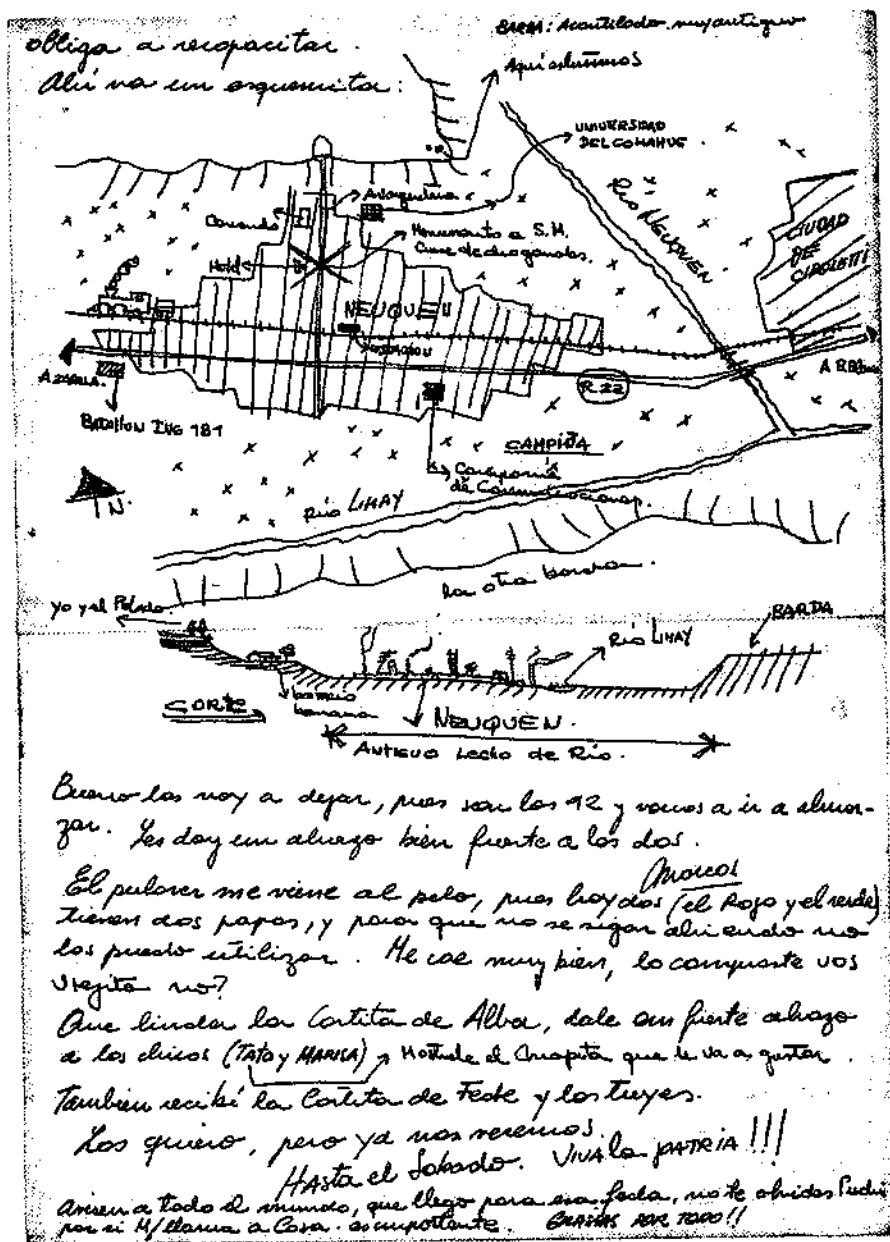 BARDA: Acantilado muy antiguo
obliga a recapacitar.
Ahí va un esquemita:
Aquí estuvimos
UNIVERSIDAD
DEL COMAHUE
Río NEUQUEN
Comando
Monumento a S.M.
Cruce de diagonales.
CIUDAD
DE
CIPOLETTI
Hotel
NEUQUEN
A ZAPALA.
R.22
A B Blanca
BATALLON ING 181
CAMPIÑA
Compañía
de Comunicaciones.
N.
Río LIMAY
La otra barda.
Yo y el Pelado.
BARDA
Río LIMAY
barrio
CORTE
NEUQUEN.
ANTIGUO Lecho de Río.
Bueno los voy a dejar, pues son las 12 y vamos a ir a almor-
zar. Les doy un abrazo bien fuerte a los dos.
El pulover me viene al pelo, pues hay dos (el Rojo y el verde)
tienen dos papas, y para que no se sigan abriendo no
los puedo utilizar. Me cae muy bien, lo compraste vos
viejita no?
Que linda la Cartita de Alba, dale un fuerte abrazo
a los chicos (TATO y MARISA) Mostrale el mapita que le va a gustar.
Tambien recibí la Cartita de Fede y las tuyas.
Los quiero, pero ya nos veremos.
Hasta el Sabado. VIVA la PATRIA!!!
Avisen a todo el mundo, que llego para esa fecha, no te olvides
por si M/ llama a Casa. es importante. GRACIAS POR TODO!!